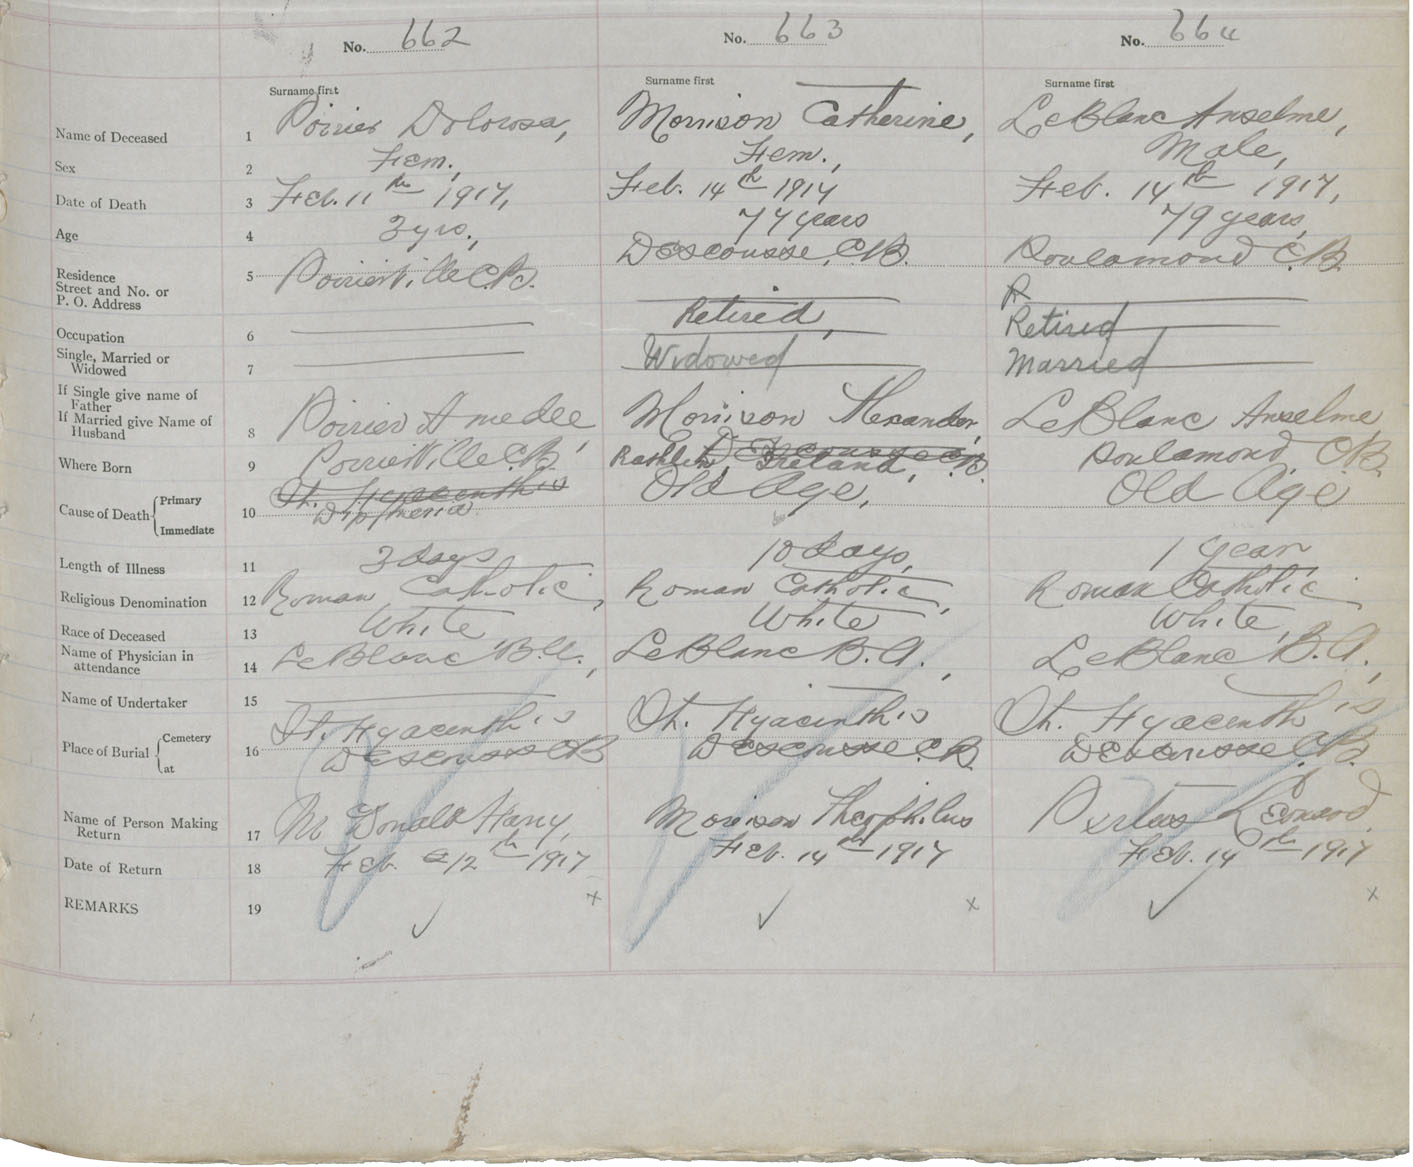 No. 662 No. 663 No. 664
Surname first Surname first Surname first
Name of Deceased 1 Poirier Dolorosa, Morrison Catherine, LeBlanc Anselme,
Sex 2 Fem., Fem., Male,
Date of Death 3 Feb. 11th 1917, Feb. 14th 1917 Feb. 14th 1917,
Age 4 3 yrs., 77 years 79 years,
Residence
Street and No. or
P. O. Address 5 PoirierVille C.B. Descousse, C.B. Poulamond C.B.
Occupation 6 Retired, Retired
Single, Married or
Widowed 7 Widowed Married
If Single give name of
Father
If Married give Name of
Husband 8 Poirier Amedee, Morrison Alexander, LeBlanc Anselme
Where Born 9 PoirierVille C.B. Rathlin, Ireland, Poulamond C.B.
Cause of Death Primary
Immediate 10 St. Hyacenth's
Diptheria Old Age, Old Age
Length of Illness 11 3 days 10 days, 1 year
Religious Denomination 12 Roman Catholic, Roman Catholic, Roman Catholic
Race of Deceased 13 White White White,
Name of Physician in
attendance 14 LeBlanc B.A., LeBlanc B.A., LeBlanc B.A.,
Name of Undertaker 15
Place of Burial Cemetery
at 16 St. Hyacenth's St. Hyacinth's St. Hyacenth's
Descousse CB Descousse C.B. Descousse C.B.
Name of Person Making
Return 17 Mc Donald Harry, Morrison Theophilus Leonard
Date of Return 18 Feb. 12th 1917 Feb. 14th 1917 Feb. 14th 1917
REMARKS 19 x x x